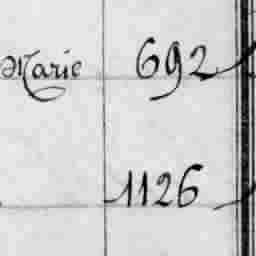 Marie 692
1126